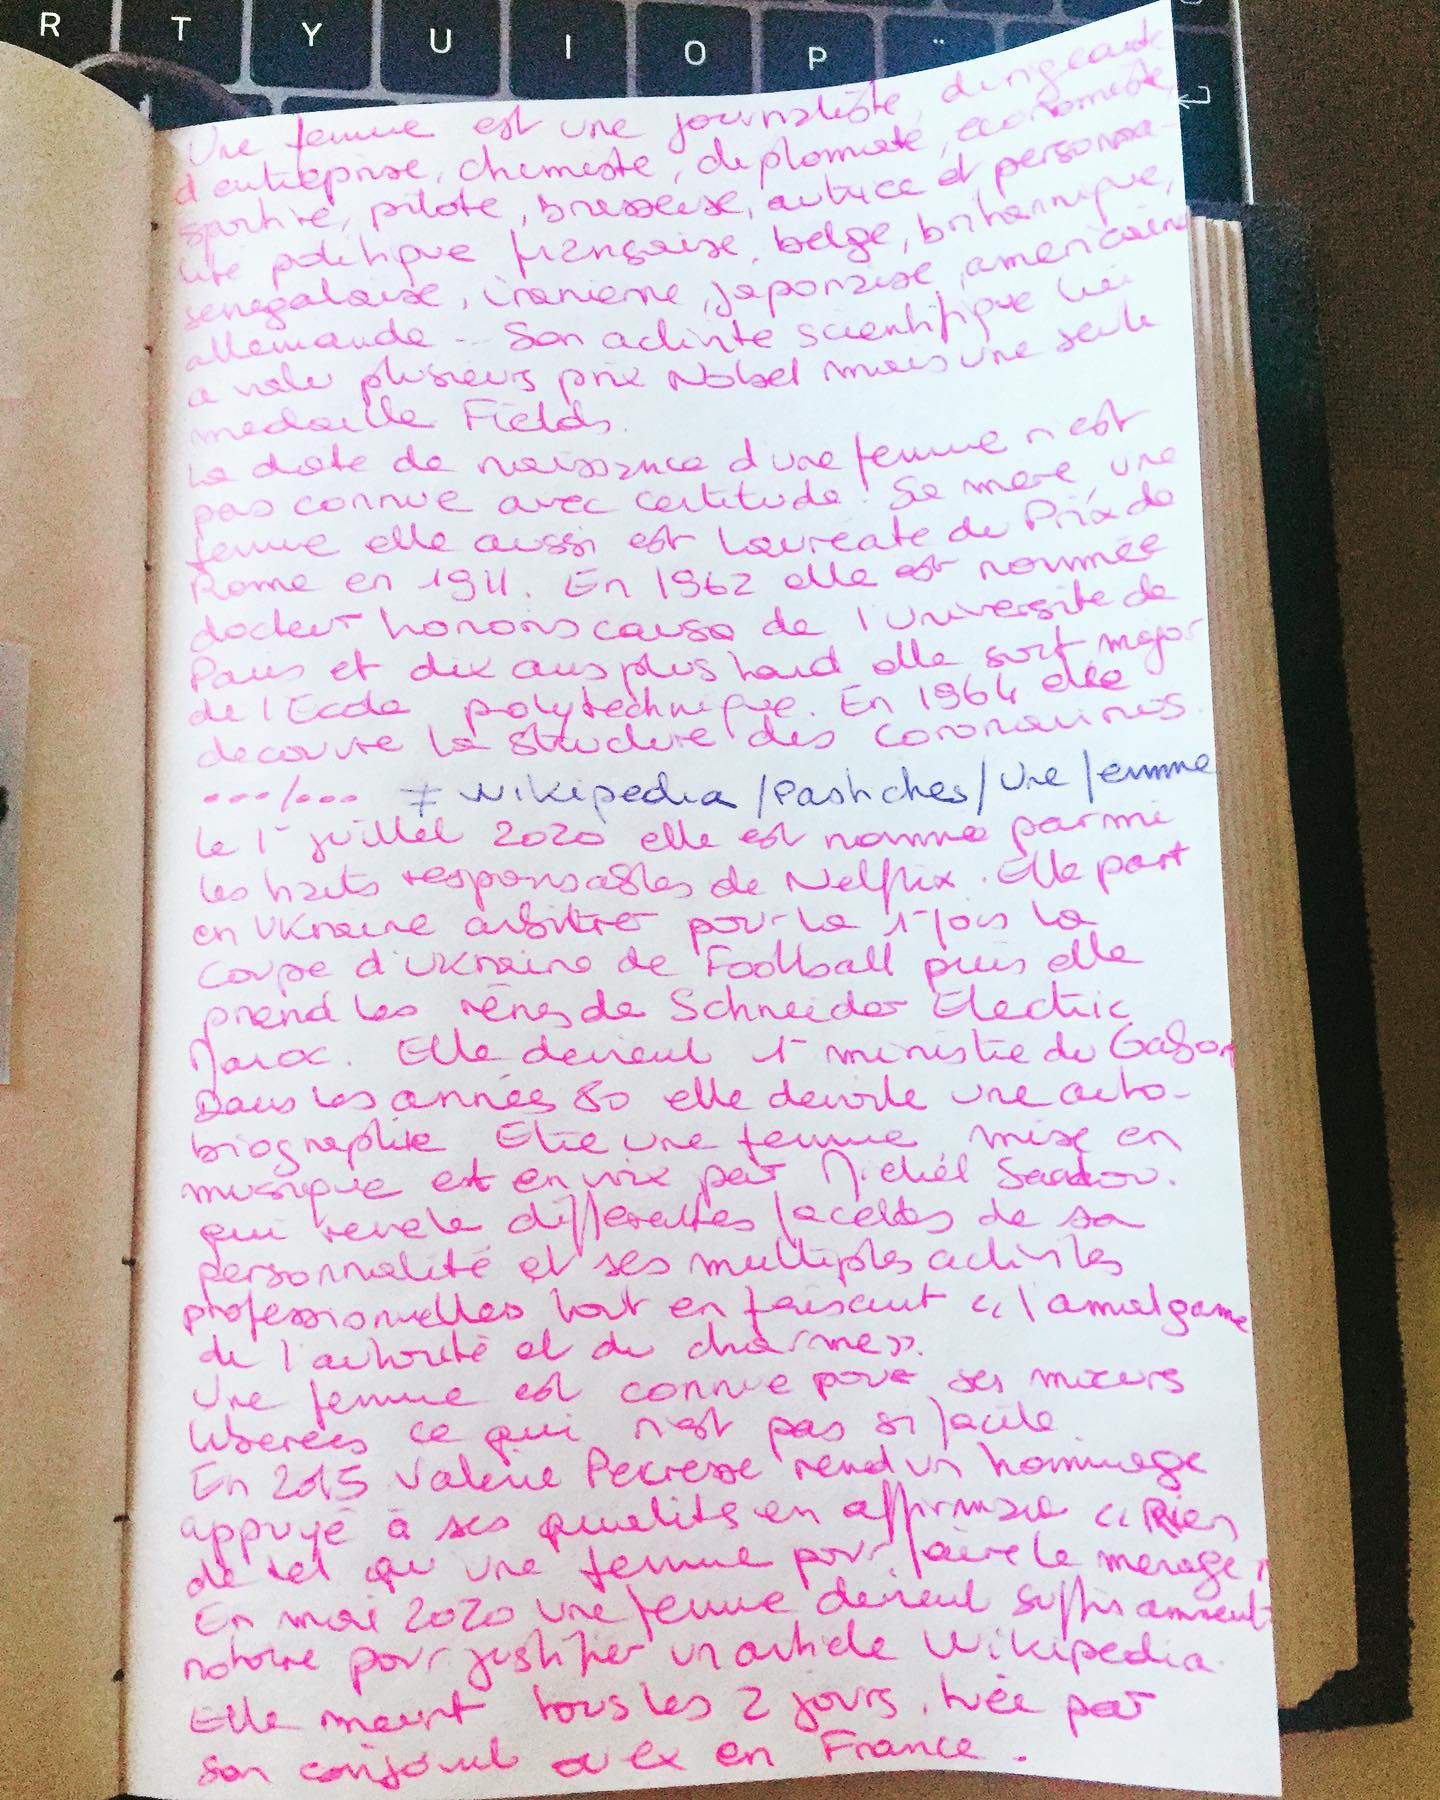 R T Y U I O P ¨
Une femme est une journaliste, dirigeante
d'entreprise, chimiste, diplomate, économiste,
sportive, pilote, brasseuse, autrice et personna-
lité politique française, belge, britannique,
sénégalaise, iranienne, japonaise, américaine
allemande... Son activité scientifique lui
a valu plusieurs prix Nobel mais une seule
medaille Fields.
La date de naissance d'une femme n'est
pas connue avec certitude. Sa mère, une
femme elle aussi est laureate du Prix de
Rome en 1911. En 1962 elle est nommée
docteur honoris causa de l'Université de
Paris et dix ans plus tard elle sort major
de l'Ecole polytechnique. En 1964 elle
decouvre la structure des coronavirus.
.../... ≠ Wikipedia/Pastiches/Une femme
Le 1er juillet 2020 elle est nommé parmi
les hauts responsables de Netflix. Elle part
en Ukraine arbitrer pour la 1e fois la
Coupe d'Ukraine de Football puis elle
prend les rênes de Schneider Electric
Maroc. Elle devient 1er ministre du Gabon
Dans les années 80 elle dévoile une auto-
biographie Etre une femme mise en
musique et en voix par Michel Sardou.
qui revele differentes facettes de sa
personnalité et ses multiples activités
professionnelles tout en faisant « l'amalgame
de l'autorité et du charme ».
Une femme est connue pour ses mœurs
liberées ce qui n'est pas si facile
En 2015 Valérie Pecresse rend un hommage
appuyé à ses qualités en affirmant « Rien
de tel qu'une femme pour faire le menage »
En mai 2020 une femme devient suffisamment
notoire pour justifier un article Wikipedia.
Elle meurt tous les 2 jours, tuée par
son conjoint ou ex en France.